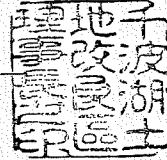 千波湖土
地改良區
理事長印